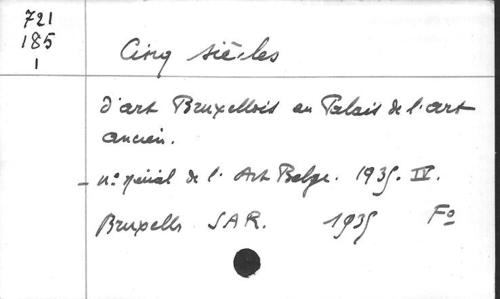 721
185
1
Cinq siècles
d'art Bruxellois au Palais de l'art
ancien.
- n° spécial de l' Art Belge. 1935. IV.
Bruxelles SAR. 1935 F°